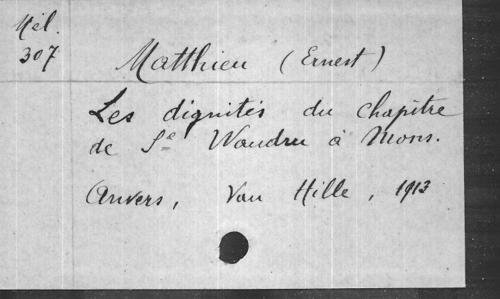 Mél.
307
Matthieu (Ernest)
Les dignités du chapitre
de Ste Waudru à Mons.
Anvers, Van Hille, 1913